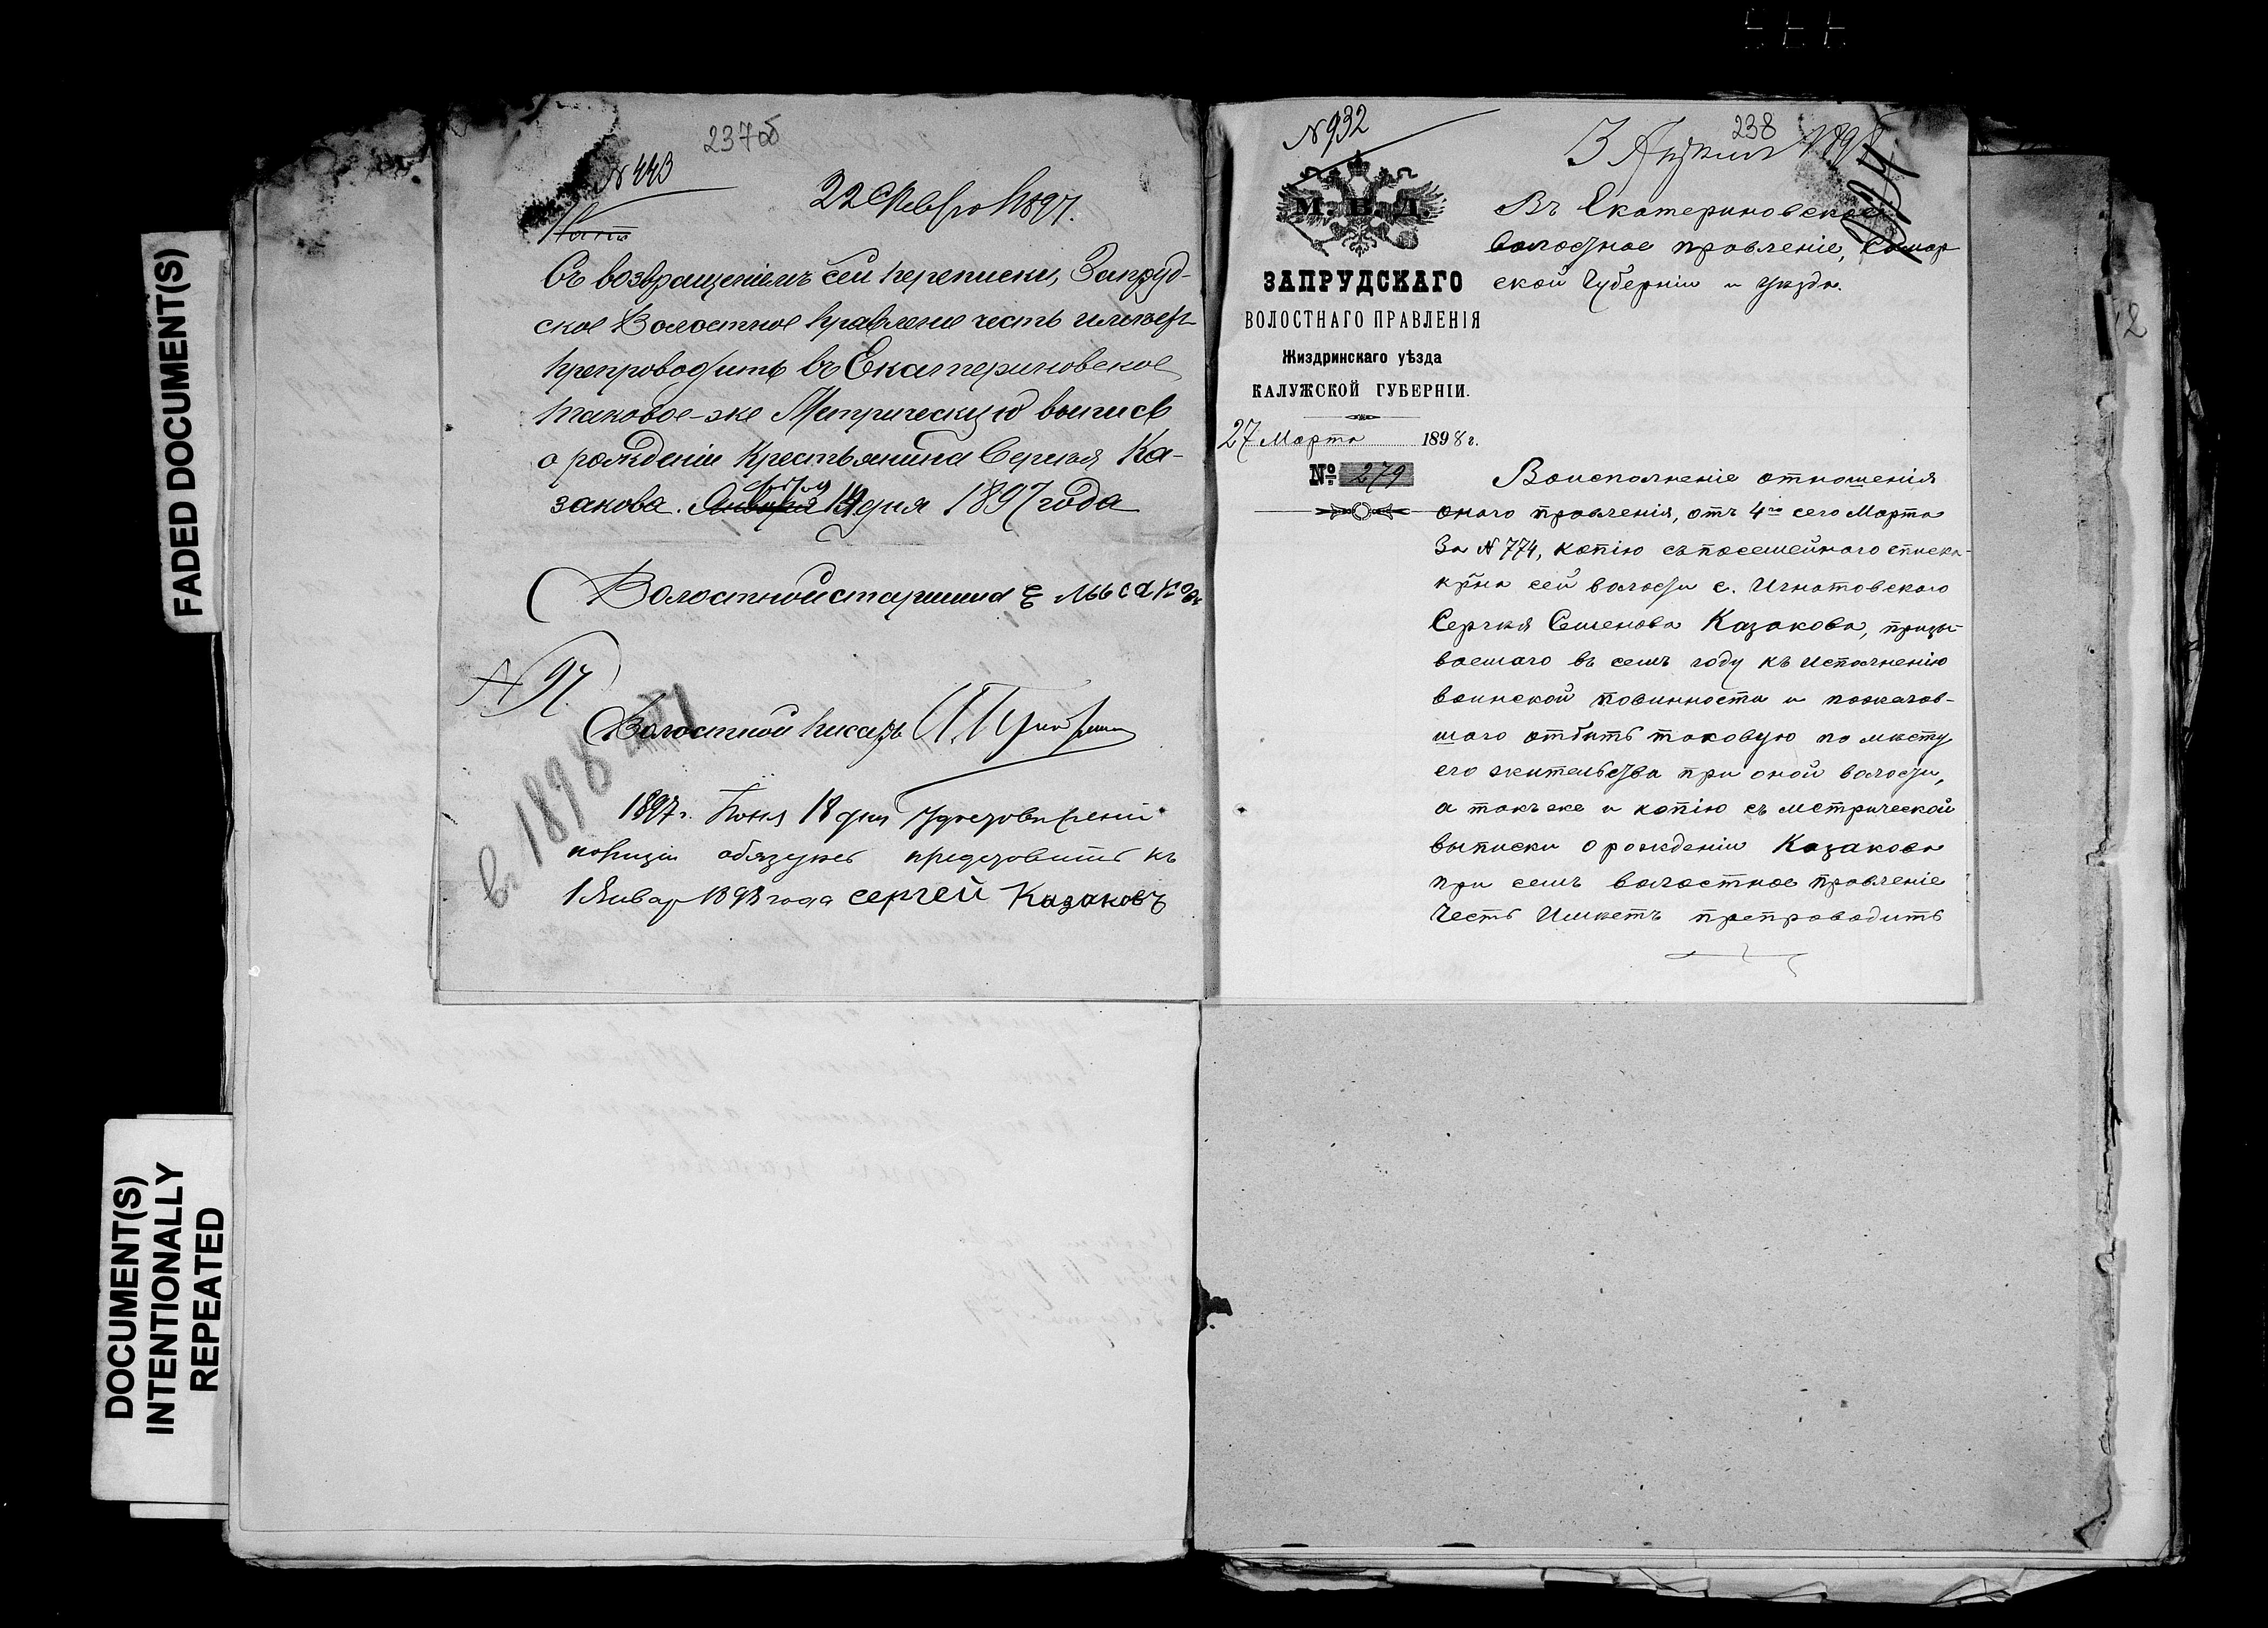 FADED DOCUMENT(S)
DOCUMENT(S)
INTENTIONALLY
REPEATED
237об
№ 443
22 Февр 1897.
Съ возвращеніемъ сей переписки, Запруд-
ское Волостное Правление честь имѣетъ
препроводить въ Екатериновское
таковое-же Метрическую выпись
о рожденіи Крестьянина Сергея Ка-
закова. Января 14 дня 1897 года
Волостной старшина
№ 97.
Волостной писарь
в 1898
1897 г. Июня 18 дня
полиціи обязуюсь предоставить къ
1 Январ 1898 года Сергей Казаковъ
№ 932
238
3 Апреля 1898
М. В. Д.
ЗАПРУДСКАГО
ВОЛОСТНАГО ПРАВЛЕНІЯ
Жиздринскаго уѣзда
КАЛУЖСКОЙ ГУБЕРНІИ.
27 Марта 1898 г.
№ 279
Въ Екатериновское
волостное правленіе, Самар
ской Губерніи и уѣзда.
Воисполненіе отношенія
онаго правленія, отъ 4го сего Марта
За № 774, копію съ посемейнаго списка
кр̃на сей волости с. Игнатовскаго
Сергѣя Семенова Казакова, призы-
ваемаго въ семъ году къ исполненію
воинской повинности и пожелав-
шаго отбыть таковую по мѣсту
его жительства при оной волости,
а такъ же и копію съ метрической
выписки о рожденіи Казакова
при семъ волостное правленіе
Честь Имѣетъ препроводить
12